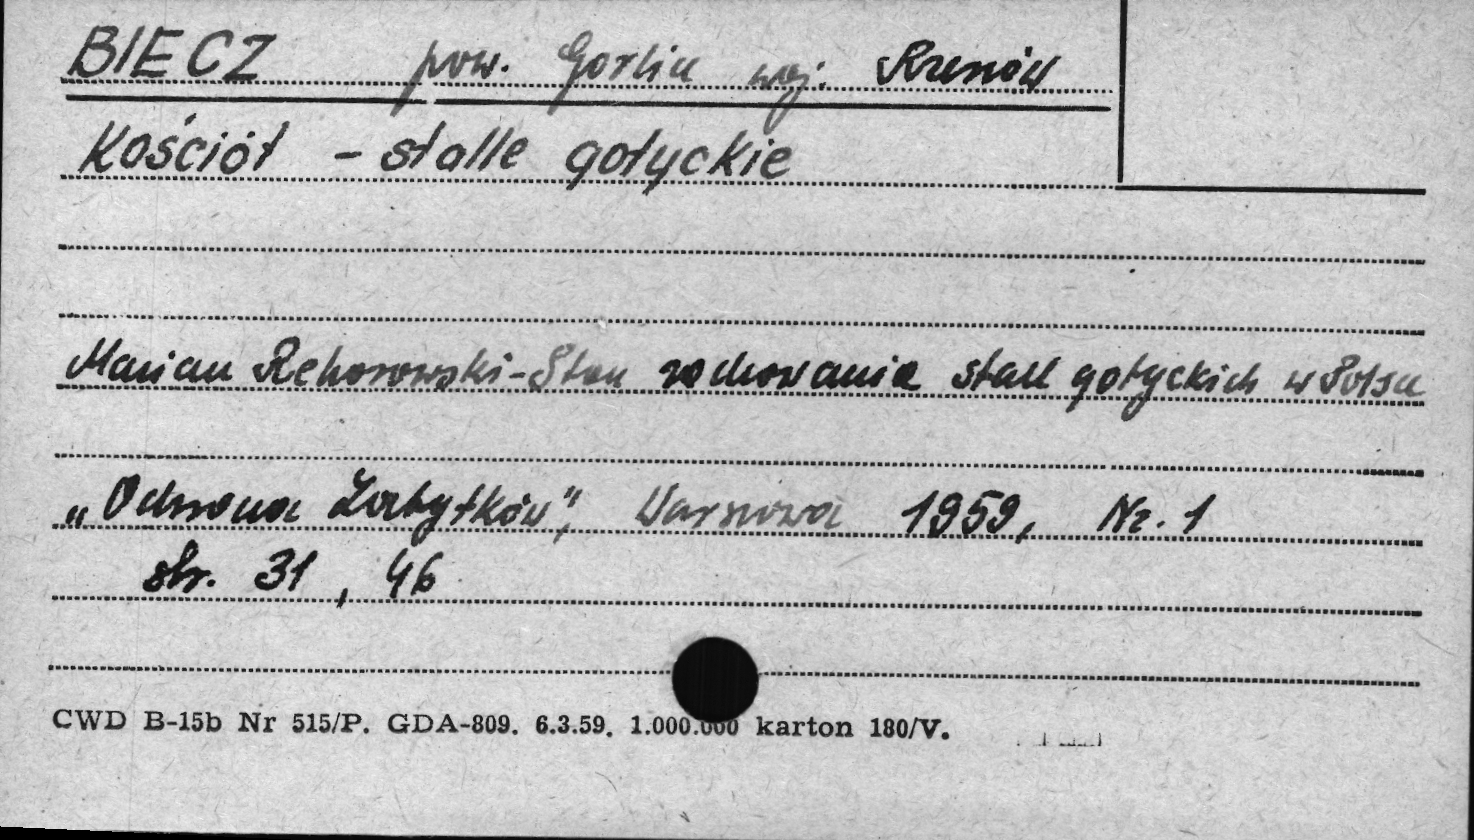 BIECZ pow. Gorlice woj. Rzeszów
Kościół - stalle gotyckie
Marian Rehorowski - Stan zachowania stall gotyckich w Polsce
„Ochrona Zabytków", Warszawa 1959, Nr. 1
str. 31, 46
CWD B-15b Nr 515/P. GDA-809. 6.3.59. 1.000.000 karton 180/V.